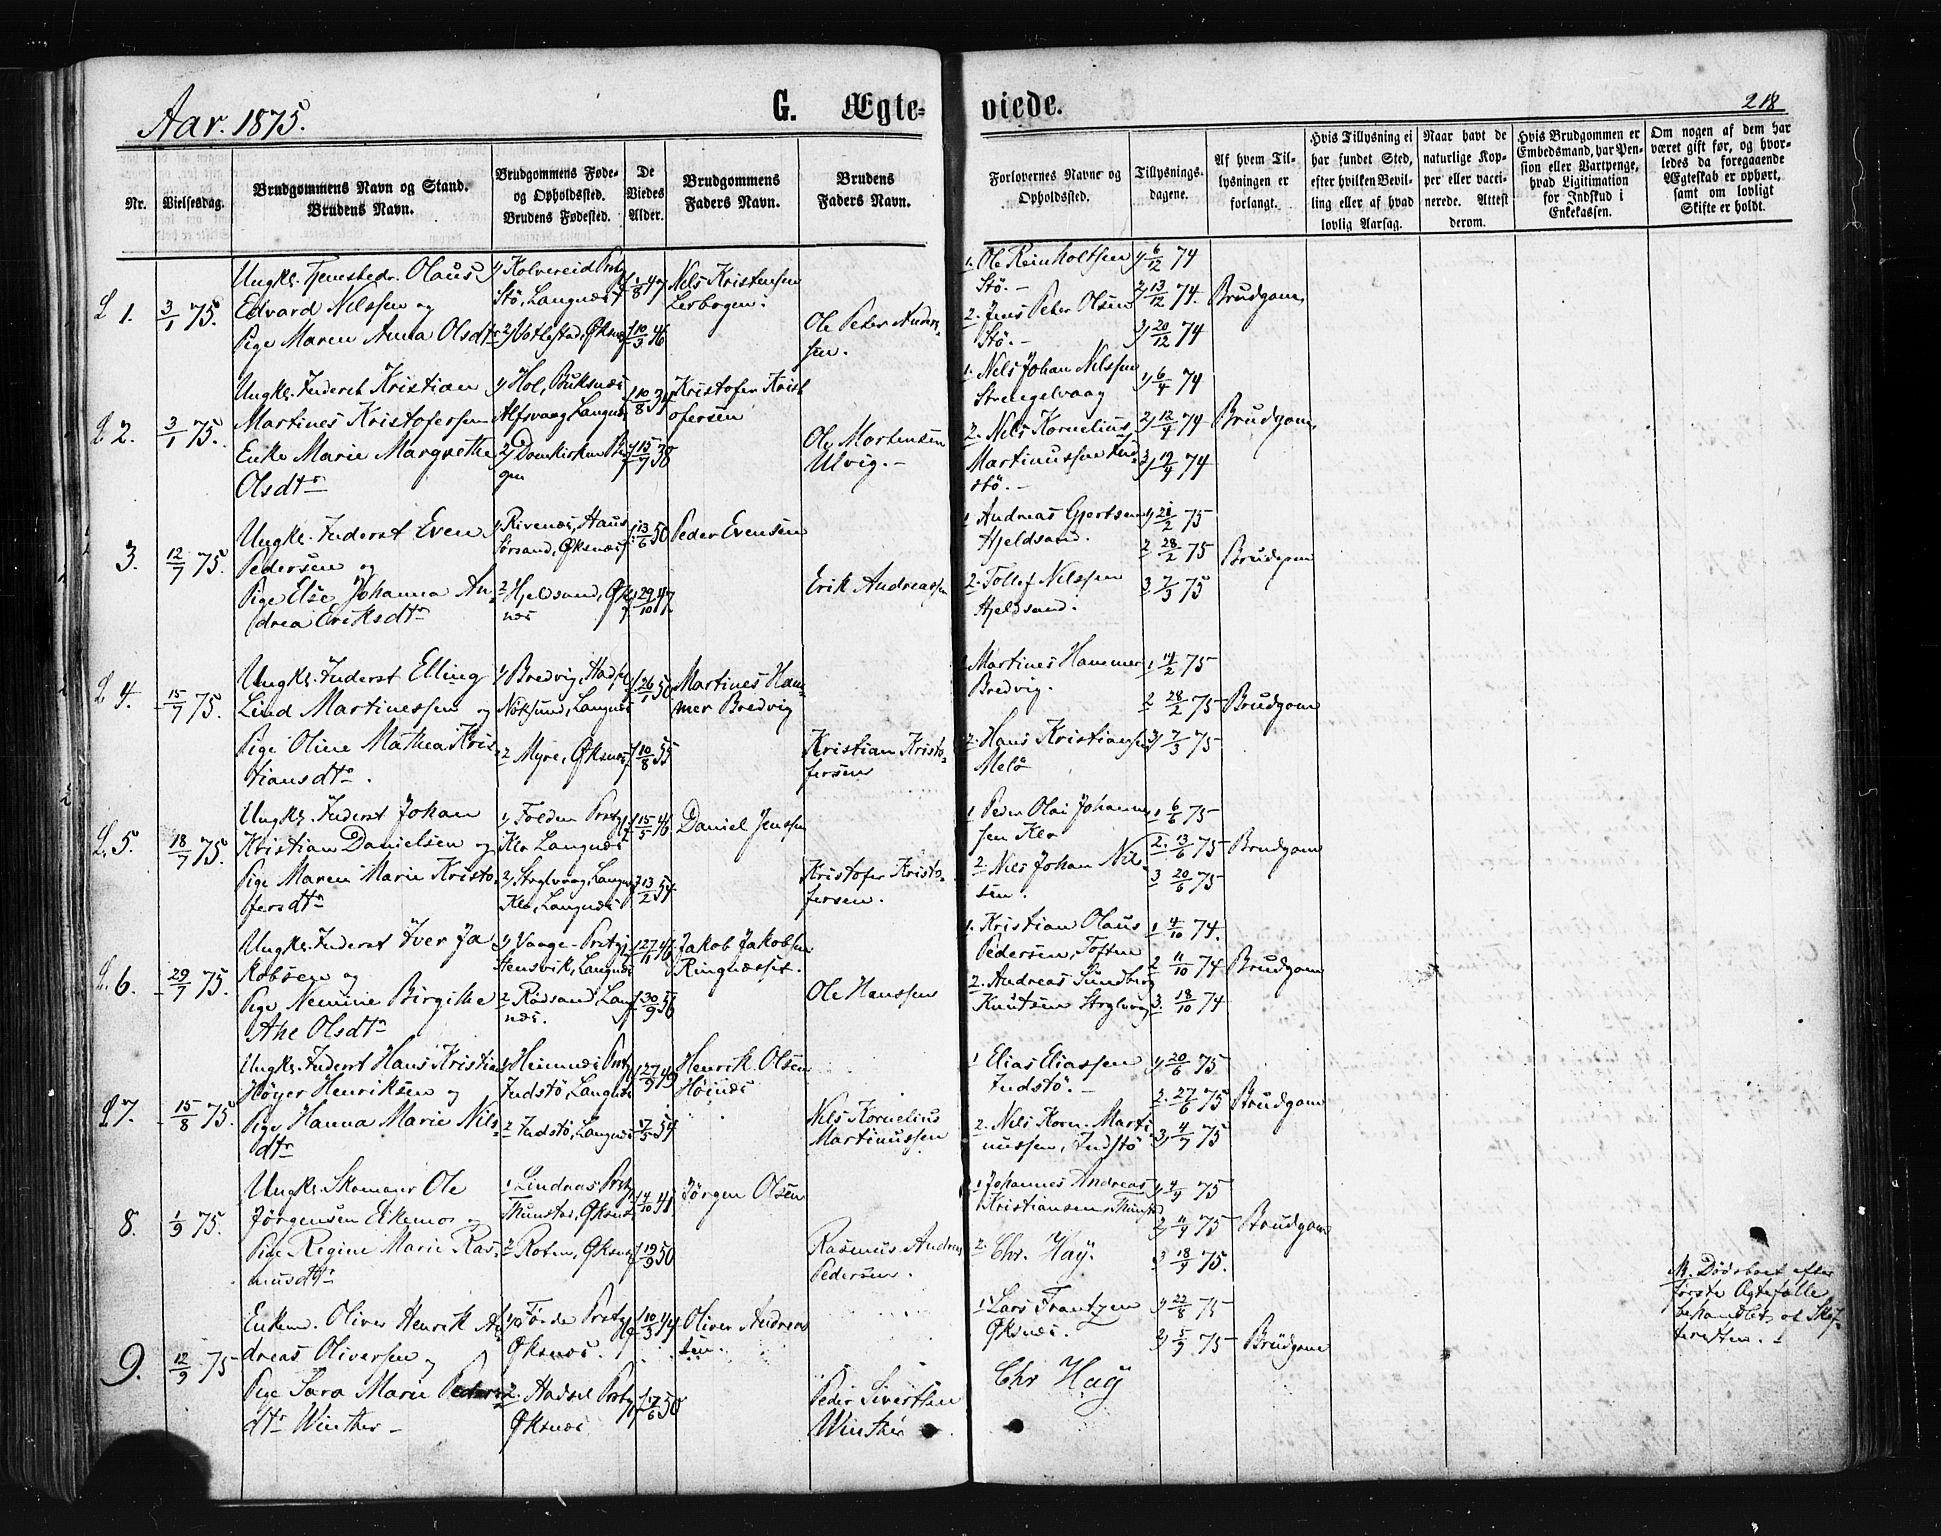 Aar. 1875.
G. Ægte-
viede.
218
Nr.
Vielsesdag.
Brudgommens Navn og Stand.
Brudens Navn.
Brudgommens Føde-
og Opholdssted.
Brudens Fødested.
De
Viedes
Alder.
Brudgommens
Faders Navn.
Brudens
Faders Navn.
Forlovernes Navne og
Opholdssted.
Tillysnings-
dagene.
Af hvem Til-
lysningen er
forlangt.
Hvis Tillysning ei
har fundet Sted,
efter hvilken Bevil-
ling eller af hvad
lovlig Aarsag.
Naar havt de
naturlige Kop-
per eller vacci-
nerede. Attest
derom.
Hvis Brudgommen er
Embedsmand, har Pen-
sion eller Vartpenge,
hvad Ligitimation
for Indskud i
Enkekassen.
Om nogen af dem har
været gift før, og hvor-
ledes da foregaaende
Ægteskab er ophørt,
samt om lovligt
Skifte er holdt.
L 1.
3/1 75.
Ungk. Tjenestedr. Olaus
Edvard Nilssen og
Pige Maren Anna Olsdtr
1) Kolvereid Prstgj
Stö, Langnæs
2) Øksnæs
1/8 47
10/3 46
Nils Kristensen
Ole Peter Anders-
sen.
1. Ole Reinholtsen
Stö.-
2. Jens Peter Olsen
Stö.-
1) 6/12 74
2) 13/12 74.
3) 20/12 74
Brudgom
L 2.
3/1 75.
Ungk. Inderst Kristian
Martines Kristofersen
Enke Marie Margrethe
Olsdtr
1) Hol, Buksnæs
Alfsvaag, Langnæs
2) Domkirken Ber
gen
10/8 34
15/7 38
Kristofer Krist
ofersen
Ole Mortensen
Ulvig.-
1. Nils Johan Nilssen
Strengelvaag
2. Nils Kornelius
Martinussen Ind-
stö.-
1) 6/4 74
2) 12/4 74
3) 19/4 74
Brudgom
3.
12/7 75.
Ungk. Inderst Even
Pedersen og
Pige Else Johanna An-
drea Eriksdtr
1) Rivenæs, Haus
Sørsand, Øksnæs
2 Hjeldsand, Øks
næs
13/6 50
29/10 47
Peder Evensen
Erik Andreassen
1 Andreas Gjertsen
Hjeldsand.
2. Tollef Nilssen
Hjeldsand.
1) 21/2 75
2 28/2 75
3 7/3 75
Brudgom
L 4.
15/7 75.
Ungk. Inderst Elling
Lind Martinessen og
Pige Oline Mathea Kris
tiansdtr.
1) Bredvig, Hadsel
Nöksund, Langnæs
2 Myre, Øksnæs
26/1 50
10/8 55
Martines Ham-
mer Bredvig
Kristian Kristo-
fersen
1 Martines Hammer
Bredvig.
2. Hans Kristiansen
Melö
1 14/2 75
2 28/2 75
3) 7/3 75
Brudgom
L. 5.
18/7 75.
Ungk. Inderst Johan
Kristian Danielsen og
Pige Maren Marie Kristo
fersdtr
1) Folden Prstgj
Klo Langnæs
2)
Klo, Langnæs
15/5 46
13/2 54
Daniel Jenssen
Kristofer Kristo-
fersen.
1 Peder Olai Johanne
sen Klo
2. Nils Johan Nil
sen.
1 6/6 75
2. 13/6 75
3 20/6 75
Brudgom
L. 6.
29/7 75.
Ungk. Inderst Iver Ja
kobsen og
Pige Nemine Birgithe
Ane Olsdtr
1) Vaage- Prstgj
Stensvik, Langnæs
2 Rödsand, Lang
næs.
27/11 46
30/9 56
Jakob Jakobsen
Ringvæsset.
Ole Hanssen
1. Kristian Olaus
Pedersen, Toften
2. Andreas Sundberg
Knutsen
1 4/10 74.
2 11/10 74
3. 18/10 74
Brudgom
L 7.
15/8 75.
Ungk. Inderst Hans Kristian
Høyer Henriksen og
Pige Hanna Marie Nils-
dtr
1) Hemnæs Prstgj
Indstö, Langnæs
2 Indstö, Langnæs
27/9 49
7/5 54
Henrik Olsen
Höinæs
Nils Kornelius
Martinussen
1 Elias Eliassen
Indstö.-
2. Nils Korn. Marti
nussen, Indstö
1) 20/6 75
2. 27/6 75
3) 4/7 75
Brudgom
8.
1/9 75.
Ungk. Skomager Ole
Jörgensen Eikemo og
Pige Regine Marie Ras-
musdtr
1 Lindaas Prstgj
Tunstad, Øksnæs
2 Roten, Øksnæs
4/10 41
19/9 50
Jörgen Olsen
Rasmus Andreas
Pedersen.
1 Johannes Andreas
Kristiansen, Tunstad
2. Chr. Hay.
1) 4/4 75
2) 11/4 75
3 18/4 75.
Brudgom
9.
12/9 75
Enkem. Oliver Henrik An
dreas Oliversen og
Pige Sara Marie Peders
dtr Winther -
1) Førde Prstgj
Øksnæs.
2. Hadsel Prstgj
Øksnæs
10/3 44
7/6 50
Oliver Andreas
sen.
Peder Sivertsen
Winther
1 Lars Frantzen
Øksnæs.
Chr Hay
1) 22/8 75
2) 5/9 75
Brudgom
M. Dödsboet efter
förste Ægtefælle
behandlet af Skif-
teretten.